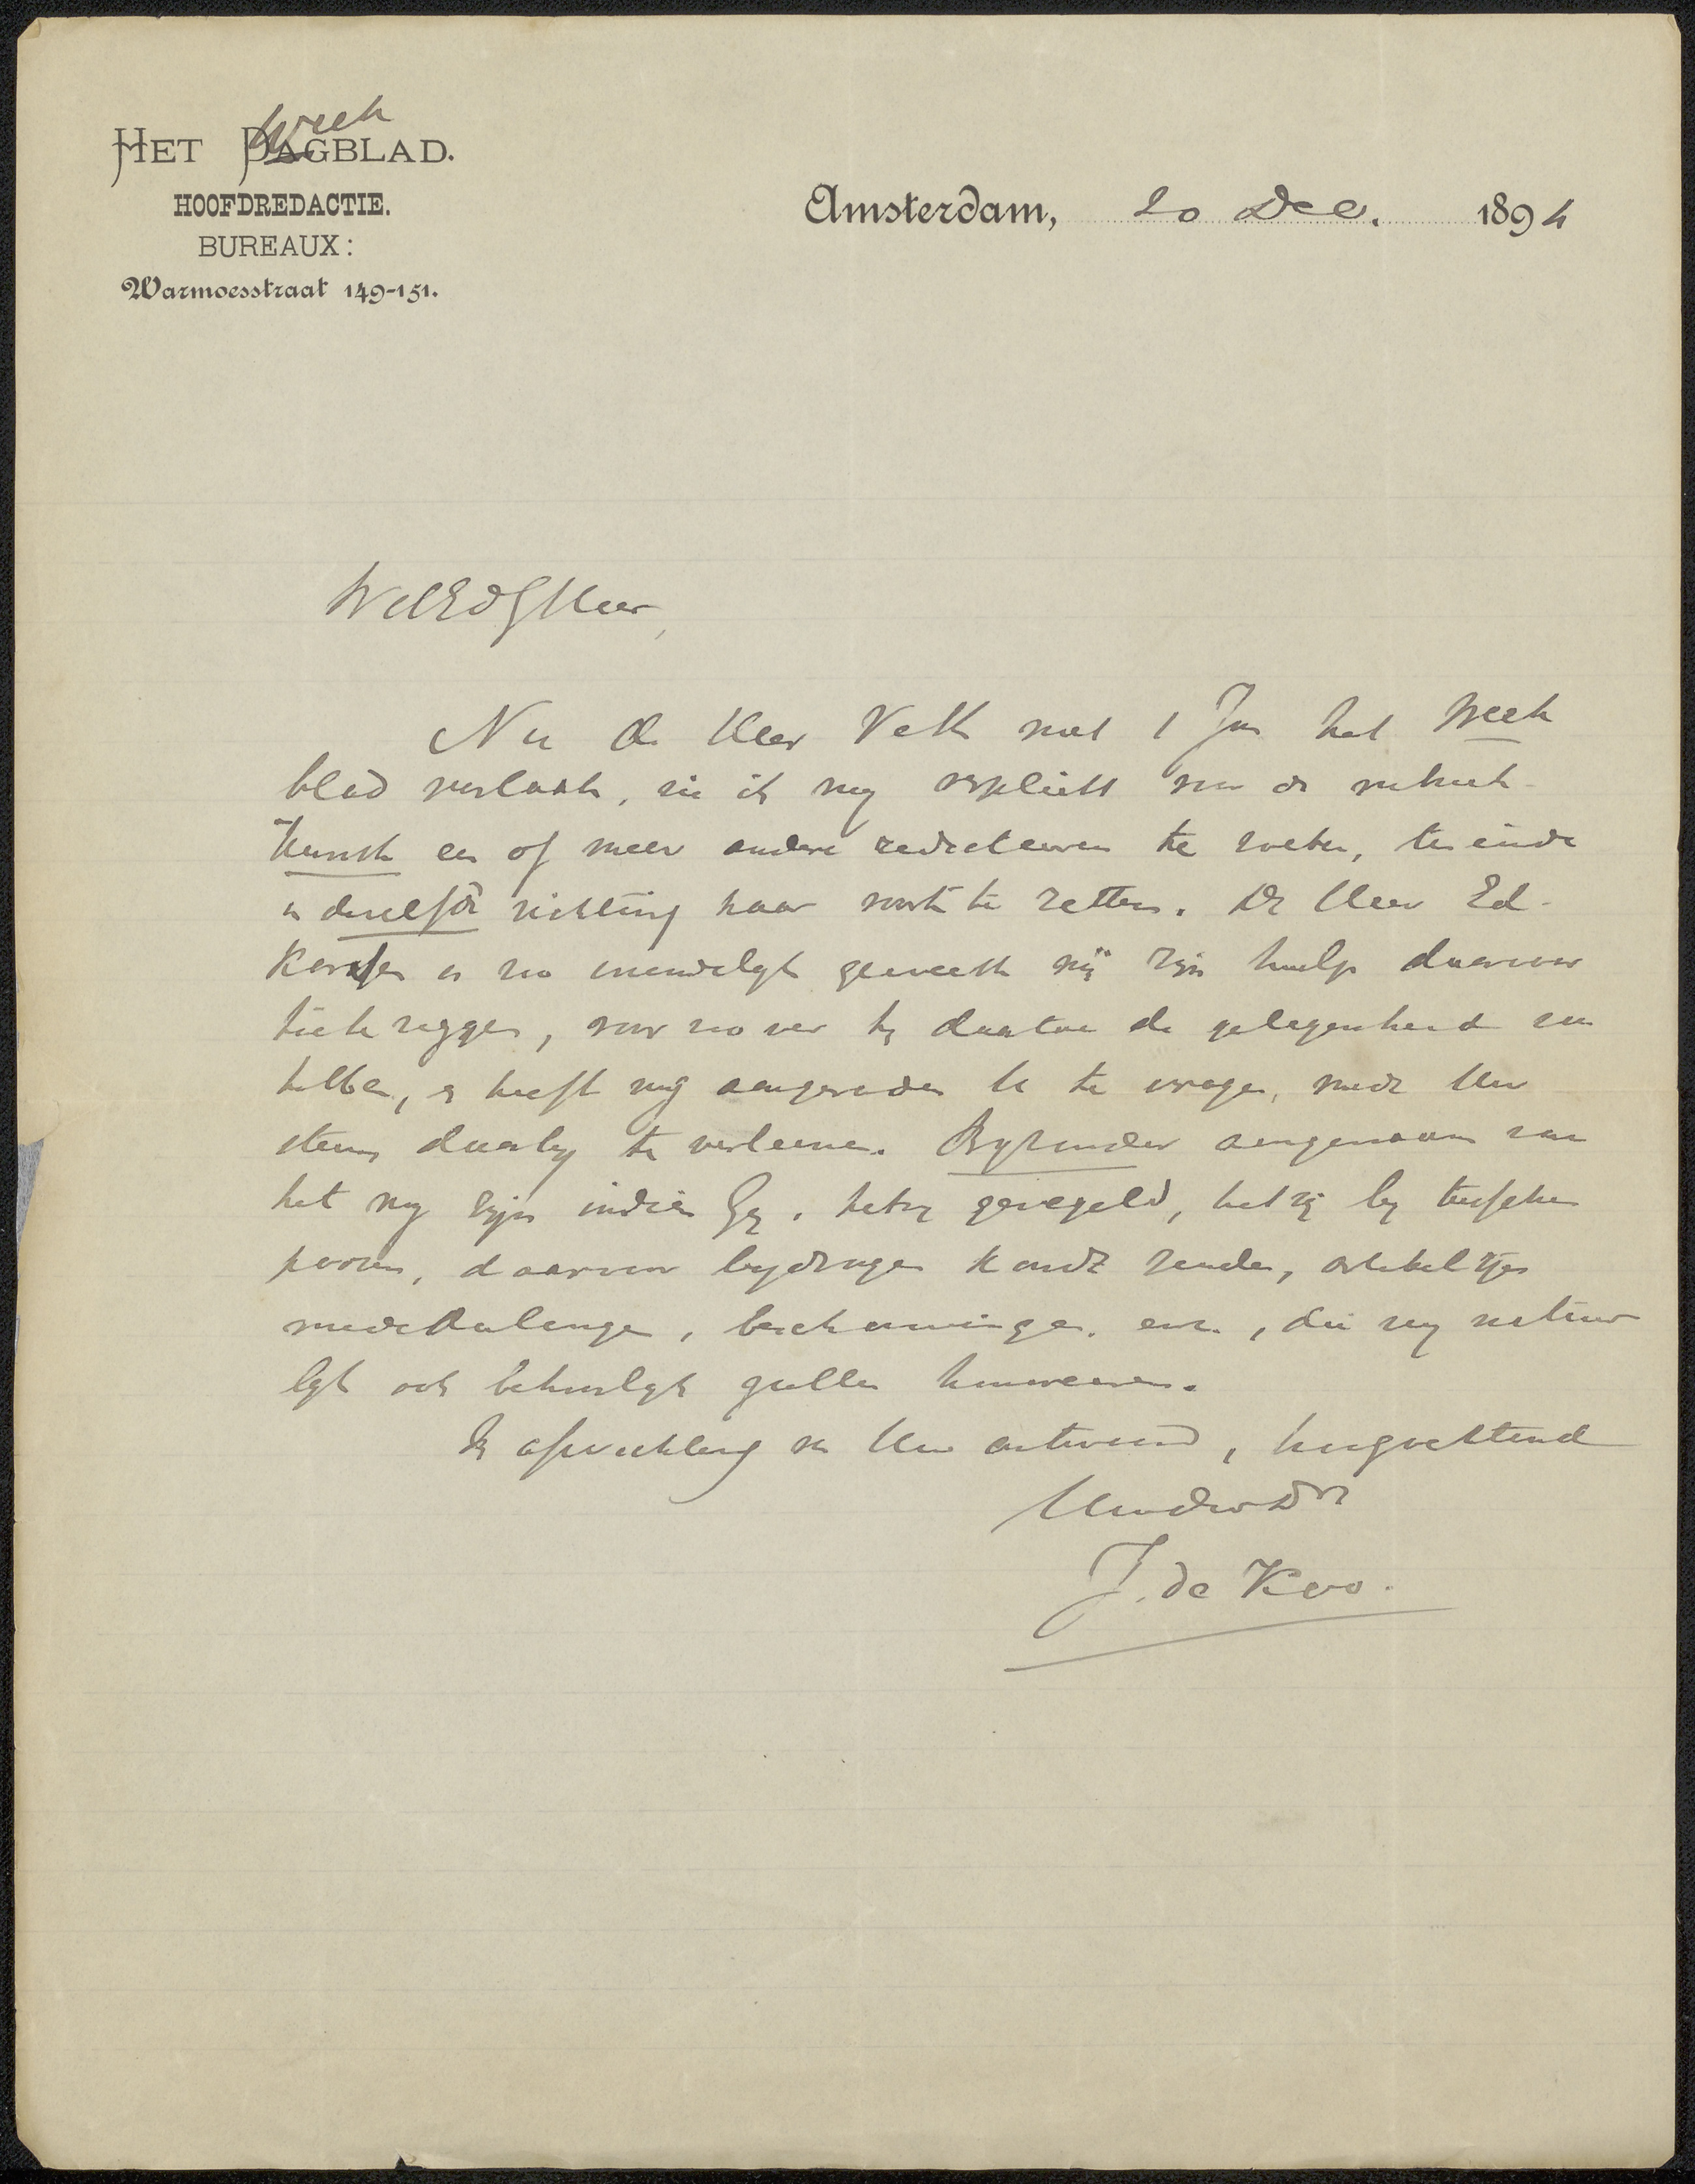 HET DAGBLAD.
Week
HOOFDREDACTIE.
BUREAUX:
Warmoesstraat 149-151.
Amsterdam, 20 Dec. 1894
WelEdG Heer,
Nu de Heer Veth met 1 Jan het Week
blad verlaat, zie ik my verplicht voor de rubriek
Kunst een of meer andere redacteuren te zoeken, ten einde
in dezelfde richting haar voort te zetten. De Heer Ed.
Karsen is zoo vriendelijk geweest mij zijn hulp daarvoor
toe te zeggen, voor zoo ver hy daartoe de gelegenheid zou
hebben, en heeft mij aangeraden U te vragen, mede Uw
steun daarby te verleenen. Byzonder aangenaam zou
het my zijn indien Gy, hetzy geregeld, hetzij by tusschen
poozen, daarvoor bydragen kondt zenden, artikeltjes
mededeelingen, beschouwingen, enz., die wy natuur
lyk ook behoorlyk zullen honoreeren.
In afwachting van Uw antwoord, hoogachtend
Uw dw Dr
J. de Koo.